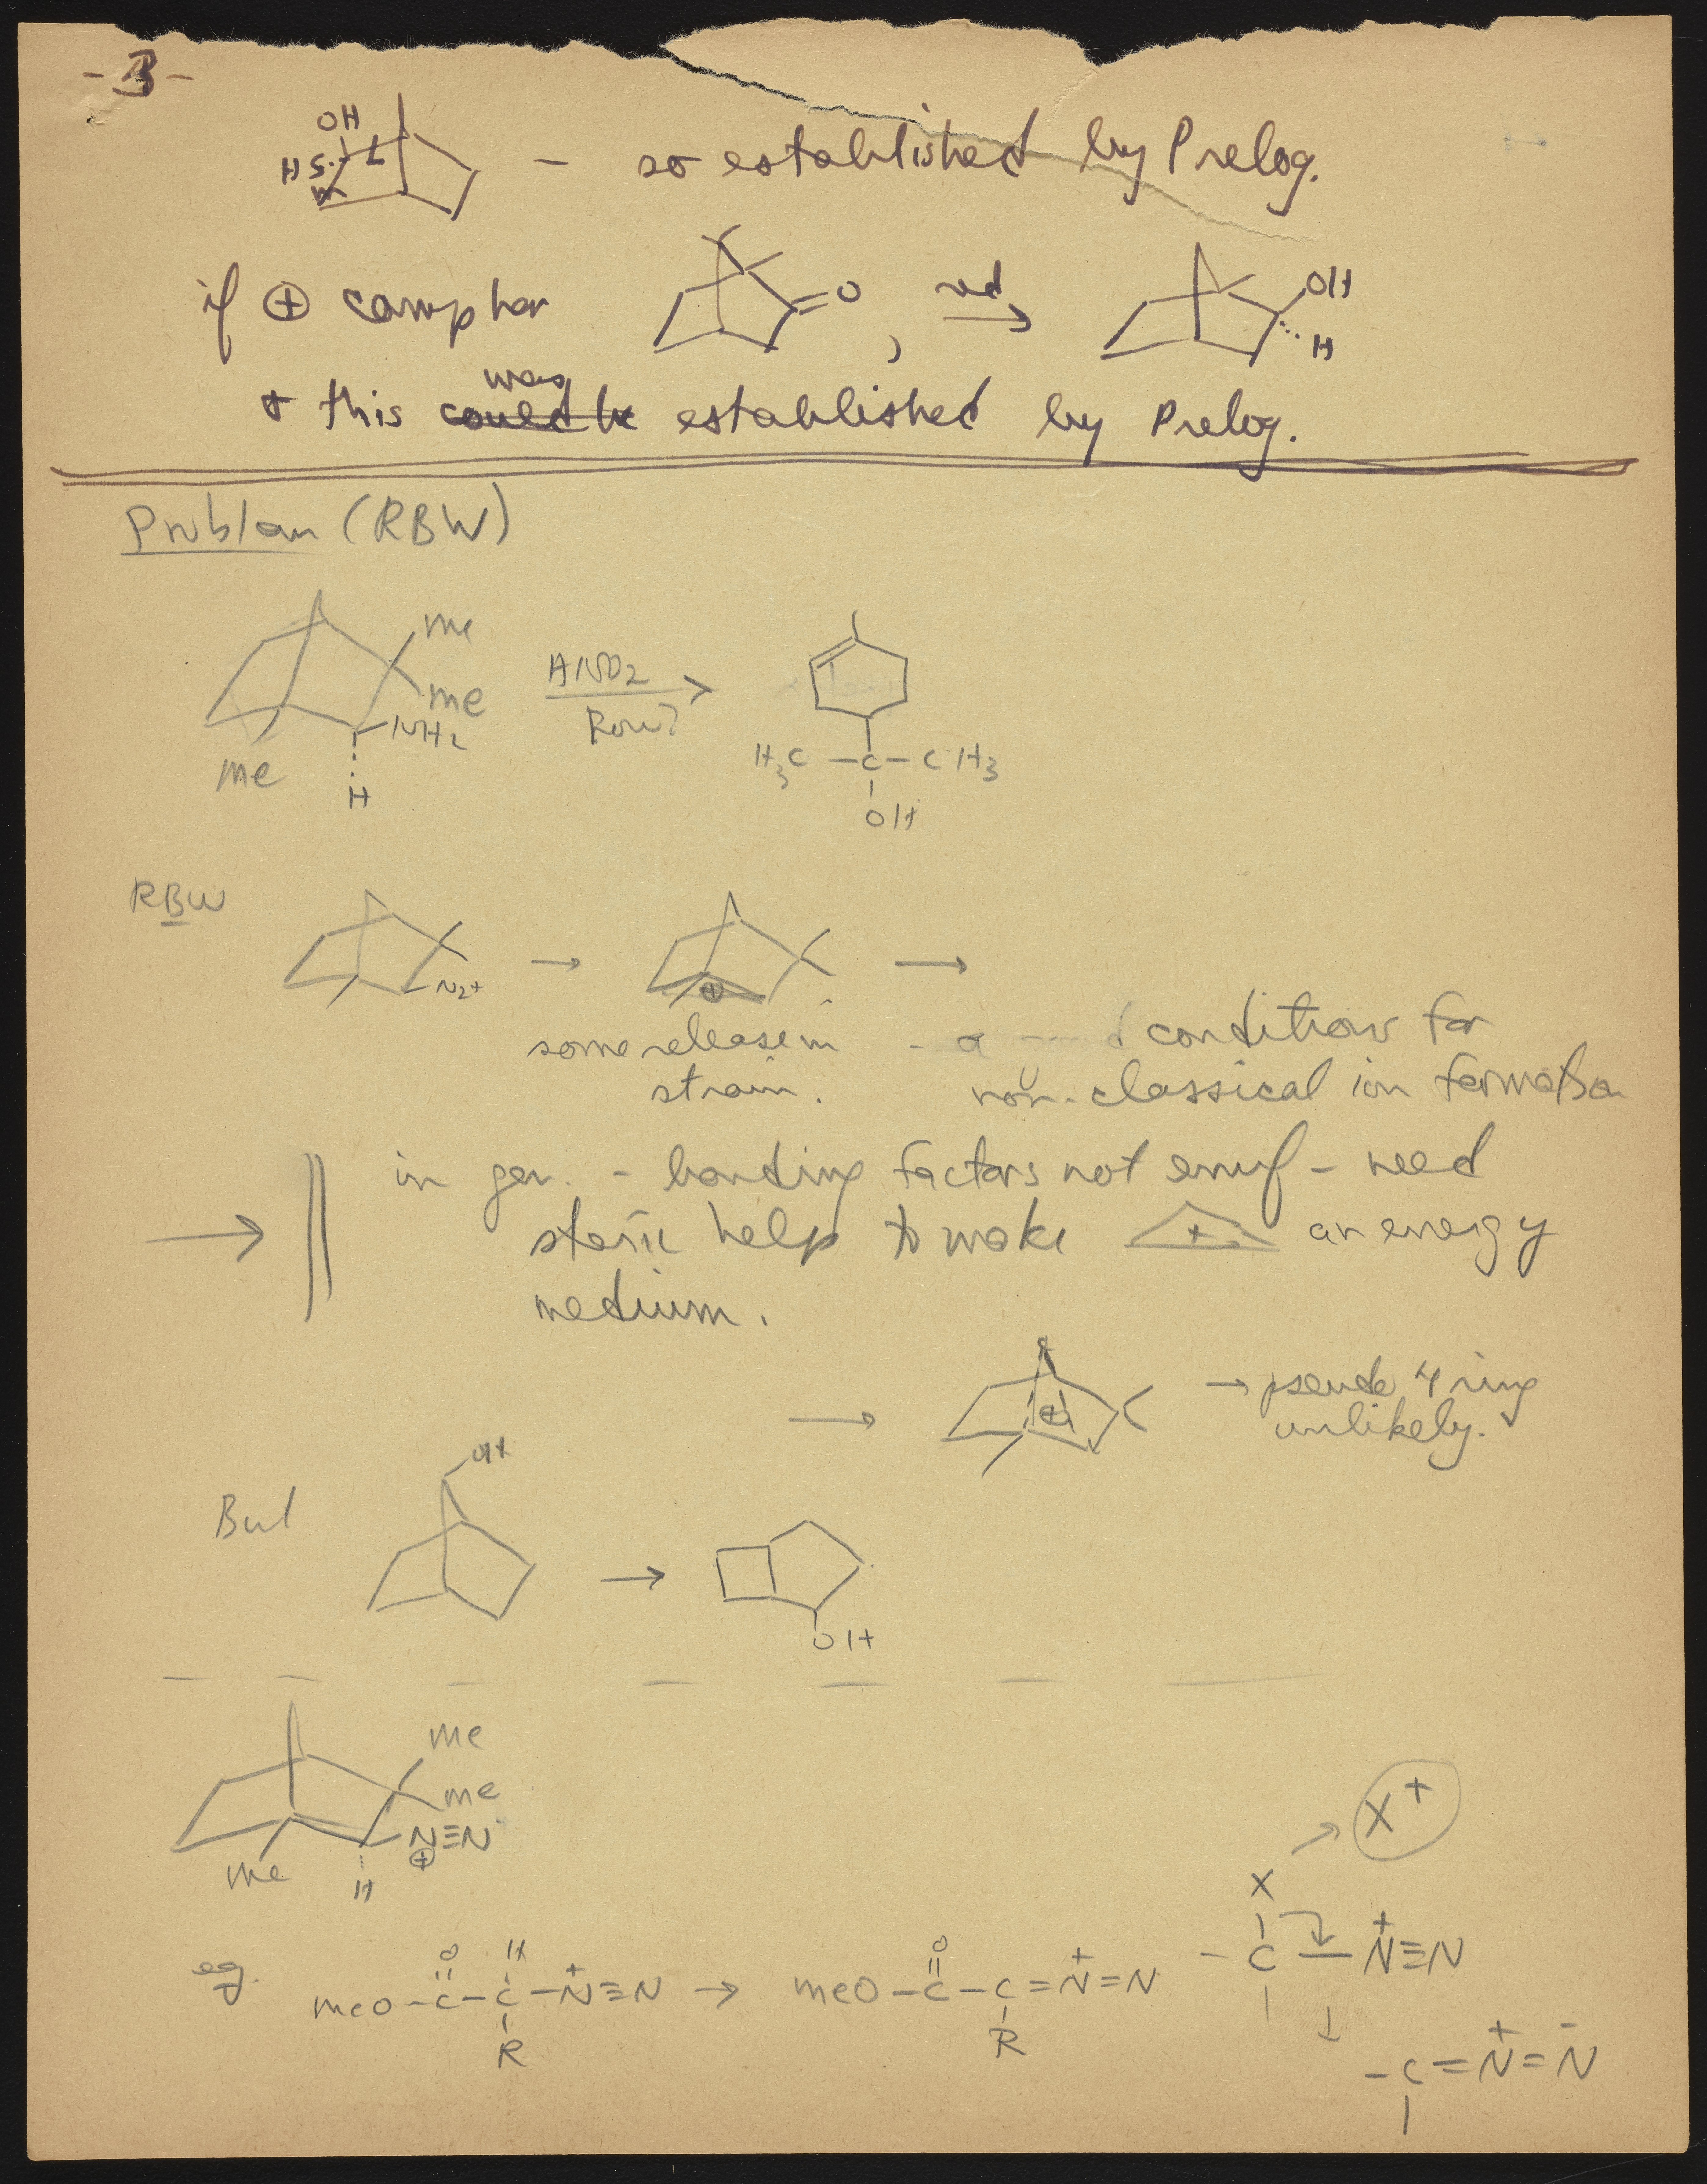 -3-
OH
H S L
M
— so established by Prelog.
if ⊕ camphor =O , red → OH
H
+ this was could be established by Prelog.
Problem (RBW)
me
me
NH2
me
H
HNO2
→
H3C — C — CH3
OH
RBW
N2+ → ⊕ →
some release in
strain.
conditions for
non-classical ion formation
→ in gen. - bonding factors not enuf - need
steric help to make + an energy
medium.
→ + → pseudo 4 ring
unlikely.
But OH → OH
me
me
N≡N
⊕
me H
X+
X
-C-N+≡N
↓
-C=N+=N-
eg. MeO-C(=O)-C(H)(R)-N+≡N → MeO-C(=O)-C(R)=N+=N